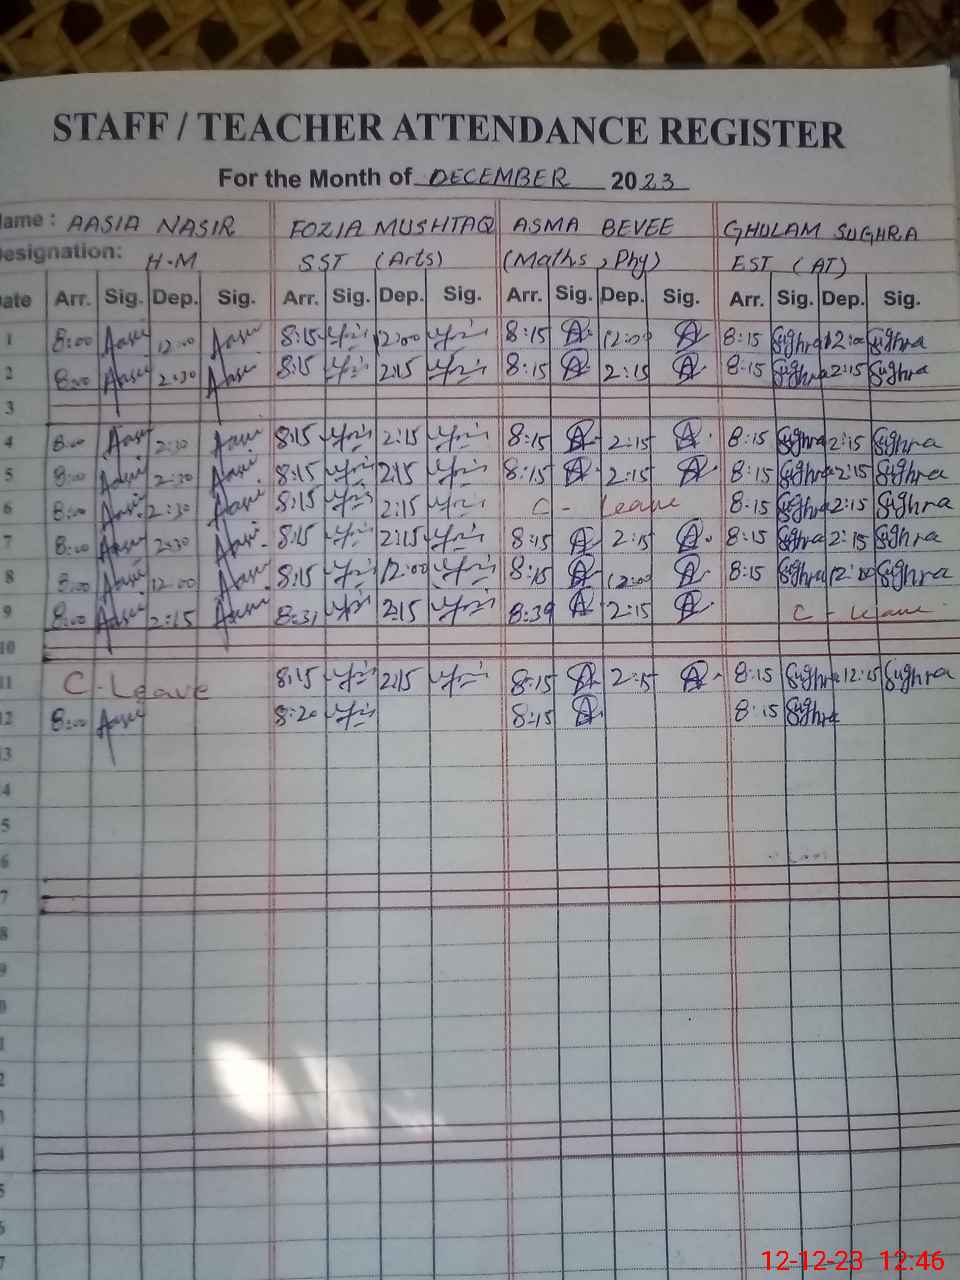 STAFF / TEACHER ATTENDANCE REGISTER
For the Month of DECEMBER 2023
Name : AASIA NASIR FOZIA MUSHTAQ ASMA BEVEE GHULAM SUGHRA
Designation: H-M SST (Arts) (Maths, Phy) EST (AT)
Date Arr. Sig. Dep. Sig. Arr. Sig. Dep. Sig. Arr. Sig. Dep. Sig. Arr. Sig. Dep. Sig.
1 8:00 Aasia 12:00 Aasia 8:15 12:00 8:15 A 12:00 A 8:15 Sughra 12:00 Sughra
2 8:00 Aasia 2:30 Aasia 8:15 2:15 8:15 A 2:15 A 8:15 Sughra 2:15 Sughra
3
4 8:00 Aasia 2:30 Aasia 8:15 2:15 8:15 A 2:15 A 8:15 Sughra 2:15 Sughra
5 8:00 Aasia 2:30 Aasia 8:15 2:15 8:15 A 2:15 A 8:15 Sughra 2:15 Sughra
6 8:00 Aasia 2:30 Aasia 8:15 2:15 C - Leave 8:15 Sughra 2:15 Sughra
7 8:00 Aasia 2:30 Aasia 8:15 2:15 8:15 A 2:15 A 8:15 Sughra 2:15 Sughra
8 8:00 Aasia 12:00 Aasia 8:15 12:00 8:15 A 12:00 A 8:15 Sughra 12:00 Sughra
9 8:00 Aasia 2:15 Aasia 8:31 2:15 8:39 A 2:15 A C - Leave
10
11 C - Leave 8:15 2:15 8:15 A 2:15 A 8:15 Sughra 12:15 Sughra
12 8:00 Aasia 8:20 8:15 A 8:15 Sughra
13
4
5
6
7
8
9
0
1
2
3
4
5
6
7
12-12-23 12:46